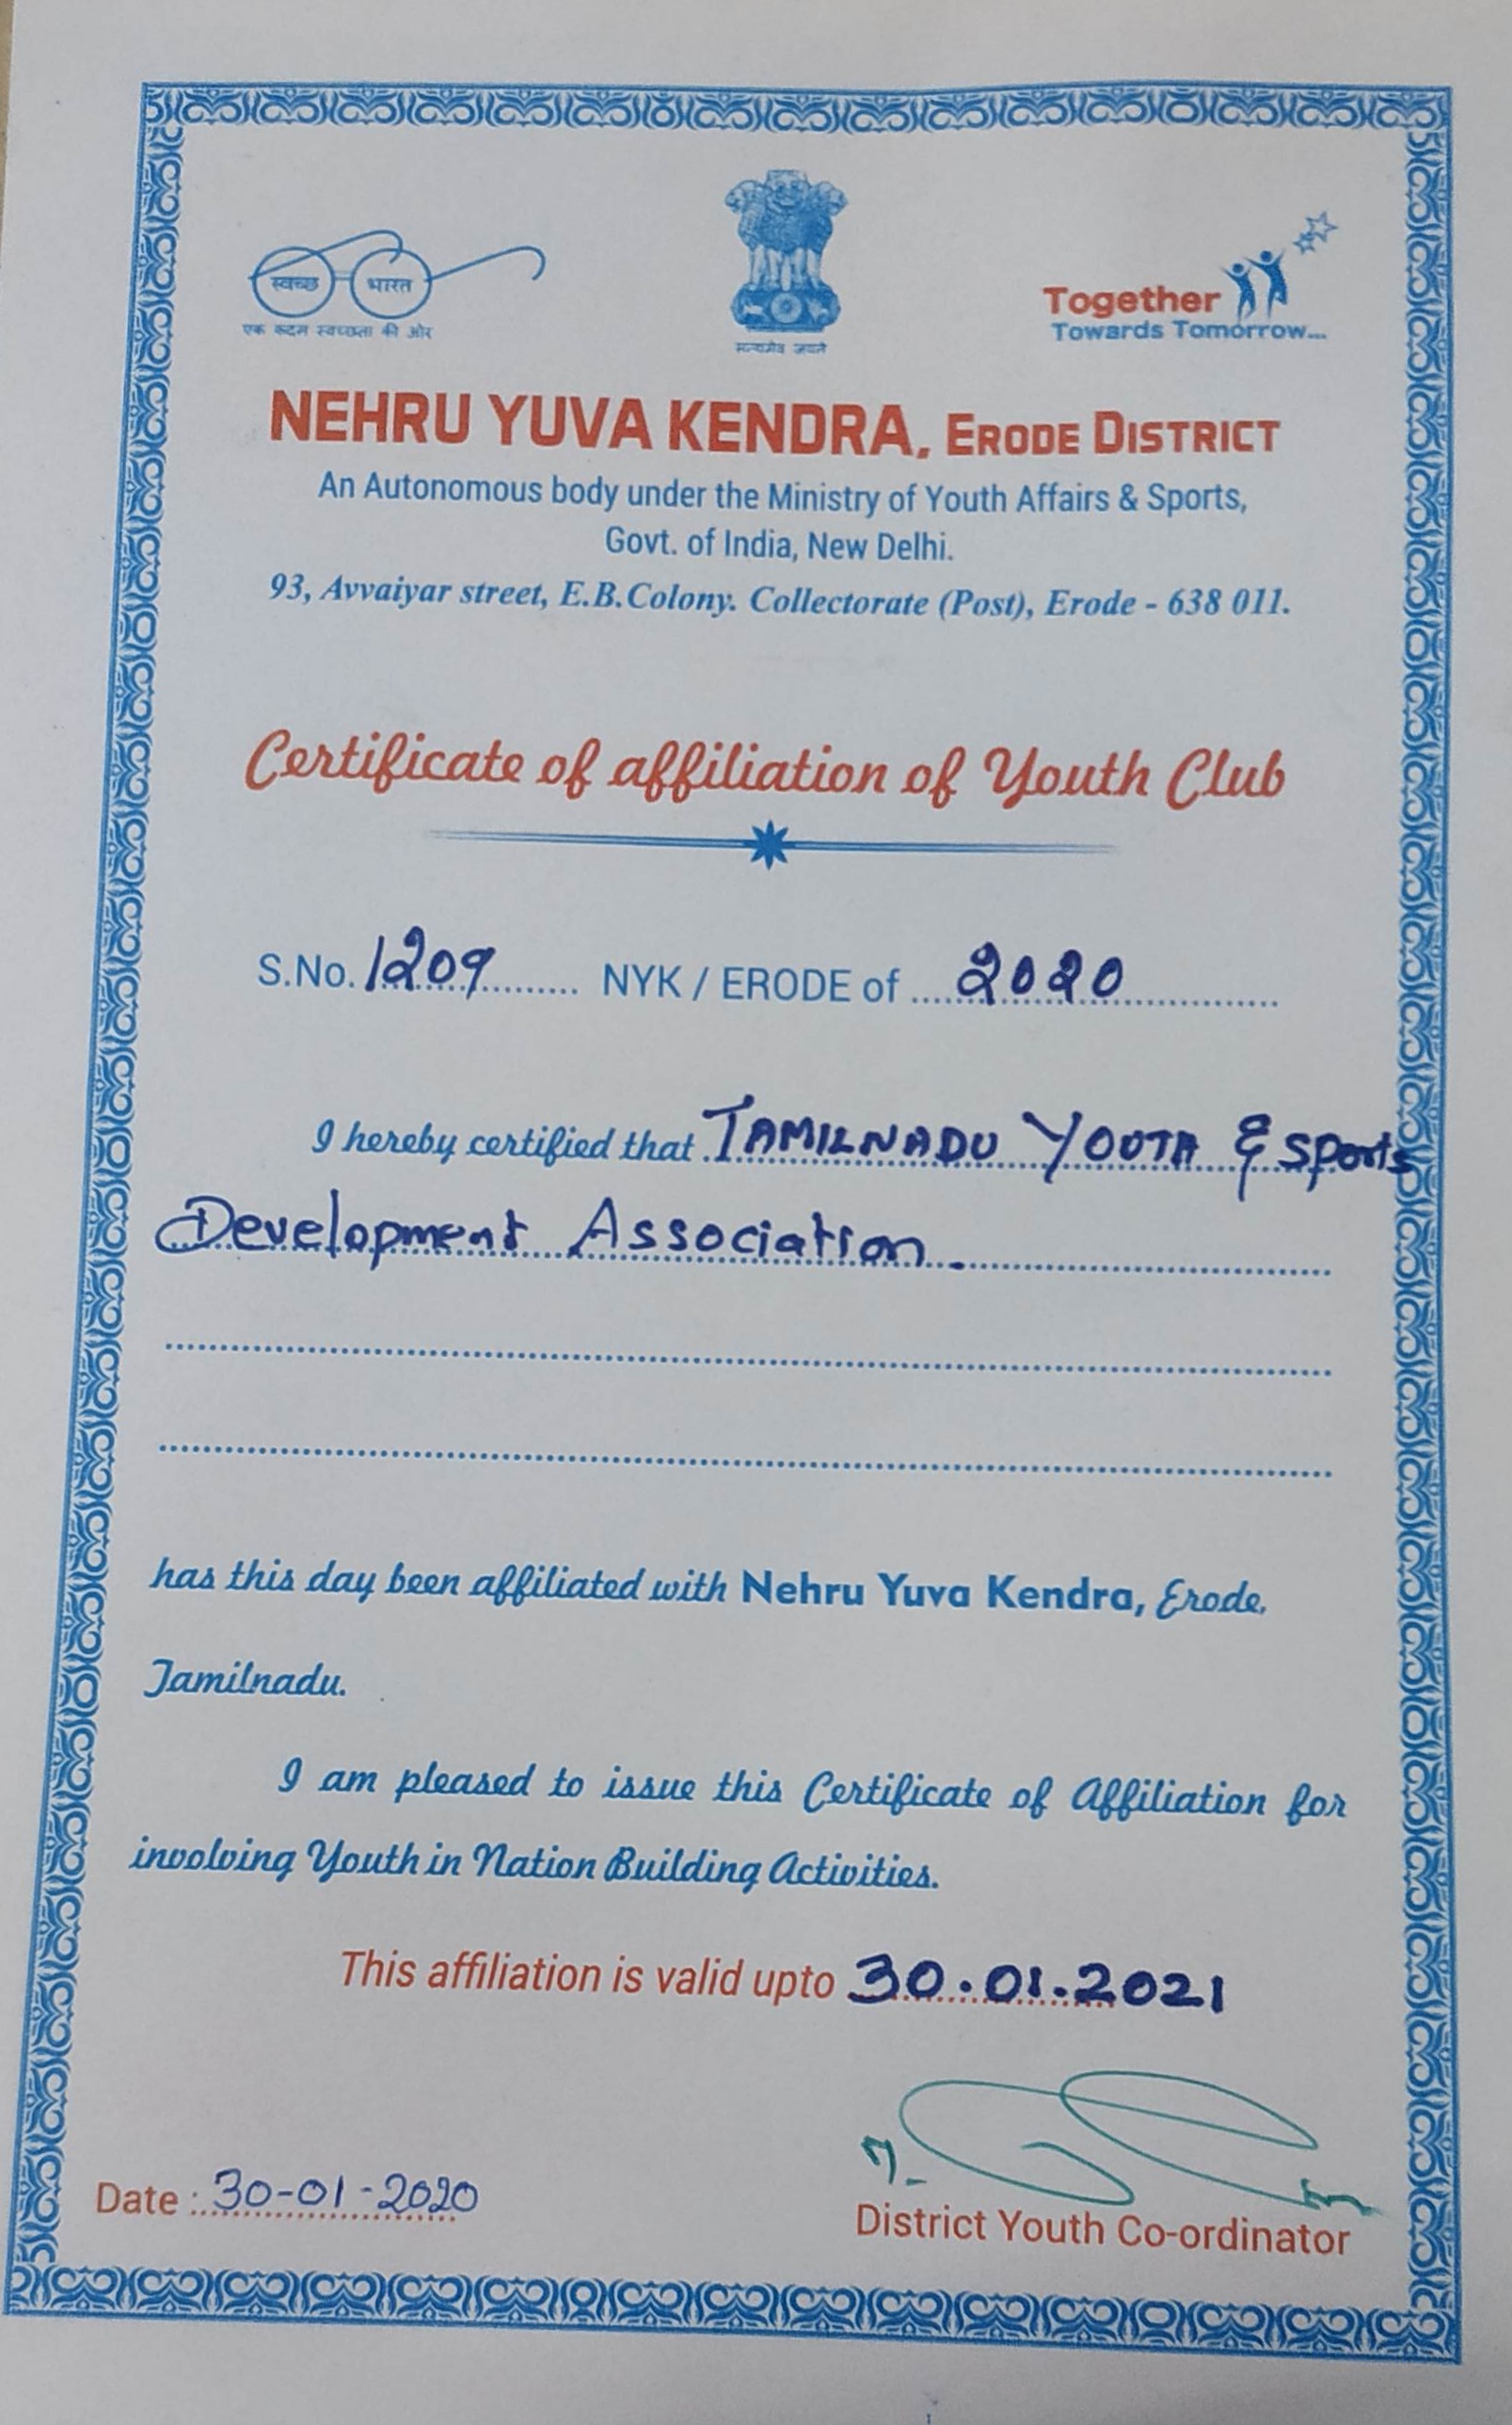 स्वच्छ भारत
एक कदम स्वच्छता की ओर
सत्यमेव जयते
Together
Towards Tomorrow...
NEHRU YUVA KENDRA, ERODE DISTRICT
An Autonomous body under the Ministry of Youth Affairs & Sports,
Govt. of India, New Delhi.
93, Avvaiyar street, E.B.Colony. Collectorate (Post), Erode - 638 011.
Certificate of affiliation of Youth Club
S.No. 1209 NYK / ERODE of 2020
I hereby certified that TAMILNADU YOUTH & Sports
Development Association.
has this day been affiliated with Nehru Yuva Kendra, Erode,
Tamilnadu.
I am pleased to issue this Certificate of Affiliation for
involving Youth in Nation Building Activities.
This affiliation is valid upto 30.01.2021
Date : 30-01-2020
District Youth Co-ordinator